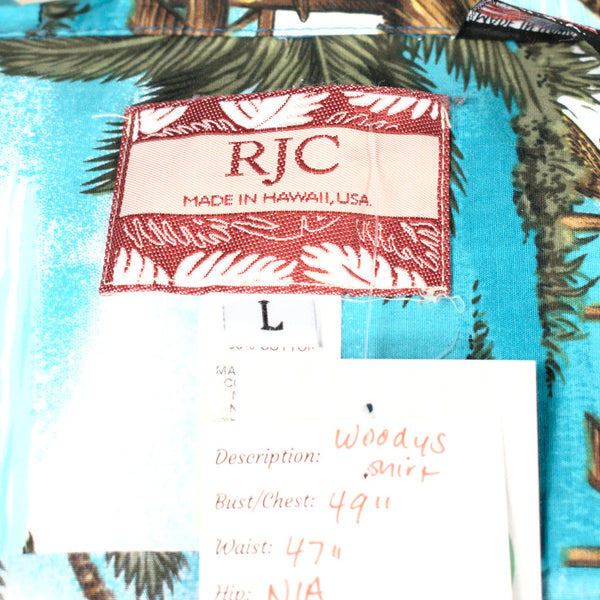 RJC
MADE IN HAWAII, USA.
L
COTTON
MA
Description: Woodys
shirt
Bust/Chest: 49"
Waist: 47"
Hip: N/A